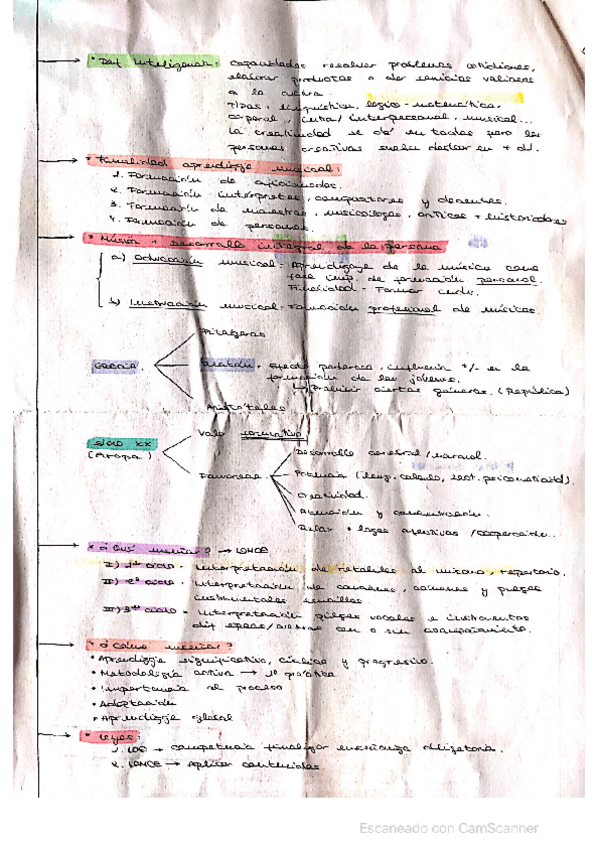 * Def Inteligencia: capacidades resolver problemas cotidianos,
elaborar productos o dar servicios valiosos
a la cultura.
Tipos: lingüística, lógico-matemática,
corporal, intra/interpersonal, musical...
La creatividad se da en todas pero las
personas creativas suelen destacar en + de 1.
* Finalidad aprendizaje musical:
1. Formación de aficionados.
2. Formación intérpretes, compositores y docentes.
3. Formación de maestros, musicólogos, críticos + historiadores
4. Formación de personas.
* Música + Desarrollo integral de la persona
a) Educación musical - Aprendizaje de la música como
de formación personal.
Finalidad - Formar
b) Instrucción musical - Formación profesional de músicos.
Pitágoras
Grecia
Platón: efecto poderoso, influencia +/- en la
formación de los jóvenes.
↳ Prohibir ciertos géneros. (República)
Aristóteles
siglo XX
(Europa)
Valor formativo
Favorece
Desarrollo cerebral/neuronal.
Potencia (leng, cálculo, psicomotricidad).
Creatividad.
Atención y concentración.
Relax + lazos afectivos/cooperación..
* ¿Qué enseñar? → LOMCE
I) 1er ciclo - Interpretación de retahílas al unísono, repertorio.
II) 2º ciclo - Interpretación de canciones, cánones y piezas
instrumentales sencillas
III) 3er ciclo - Interpretación piezas vocales e instrumentos
dif épocas/ con o sin acompañamiento.
* ¿Cómo enseñar?
• Aprendizaje significativo, cíclico y progresivo.
• Metodología activa → 1º práctica
• Importancia al proceso
• Adaptación
• Aprendizaje global
* Leyes:
1. LOE → competencia finalizar enseñanza obligatoria.
2. LOMCE → Aplicar contenidos
Escaneado con CamScanner